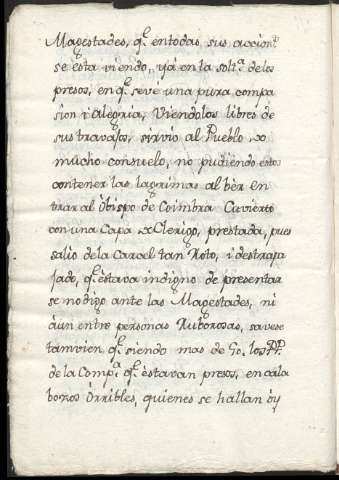 Magestades, q.e entodas sus accion.s
se esta viendo, ya en la solt.a delos
presos, en q.e sevé una pura compa
sion i Alegria, Viendolos libres de
sus travajos, sirvió al Pueblo xo
mucho consuelo, no pudiendo estos
contener las lagrimas al bèr en
trar al Obispo de Coimbra Cuvierto
con una Capa x Clerigo, prestada, pues
salio dela Carcel tan Roto, i destrapa
jado, q.e èstava indigno de presentar
se no digo ante las Magestades, ni
àun entre personas Ruborosas, savese
tamvien q.e siendo mas de 60. los PP.
de la Comp.a q.e èstavan presos, en cala
bozos Òrribles, quienes se hallan òy